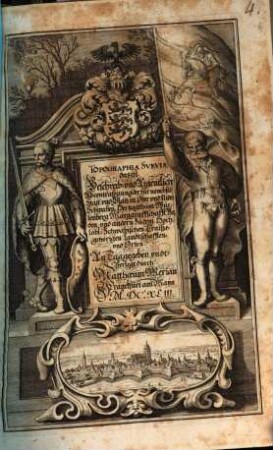 4.
TOPOGRAPHIA SVEVIÆ
das ist
Beschreib: und Aigentliche
Abcontrafeitung der fürnembste
Stätt und Plätz in Ober und Nider
Schwaben, Hertzogthum Würtenberg
Marggraffschafft Baden
und andern zu dem Hochlöbl:
Schwabischen Craiße
gehörigen Landtschafften
und Orten.
An Tag gegeben undt
Verlegt durch
Matthæum Merian
Franckfurt am Mayn
M.DC.XLIII.